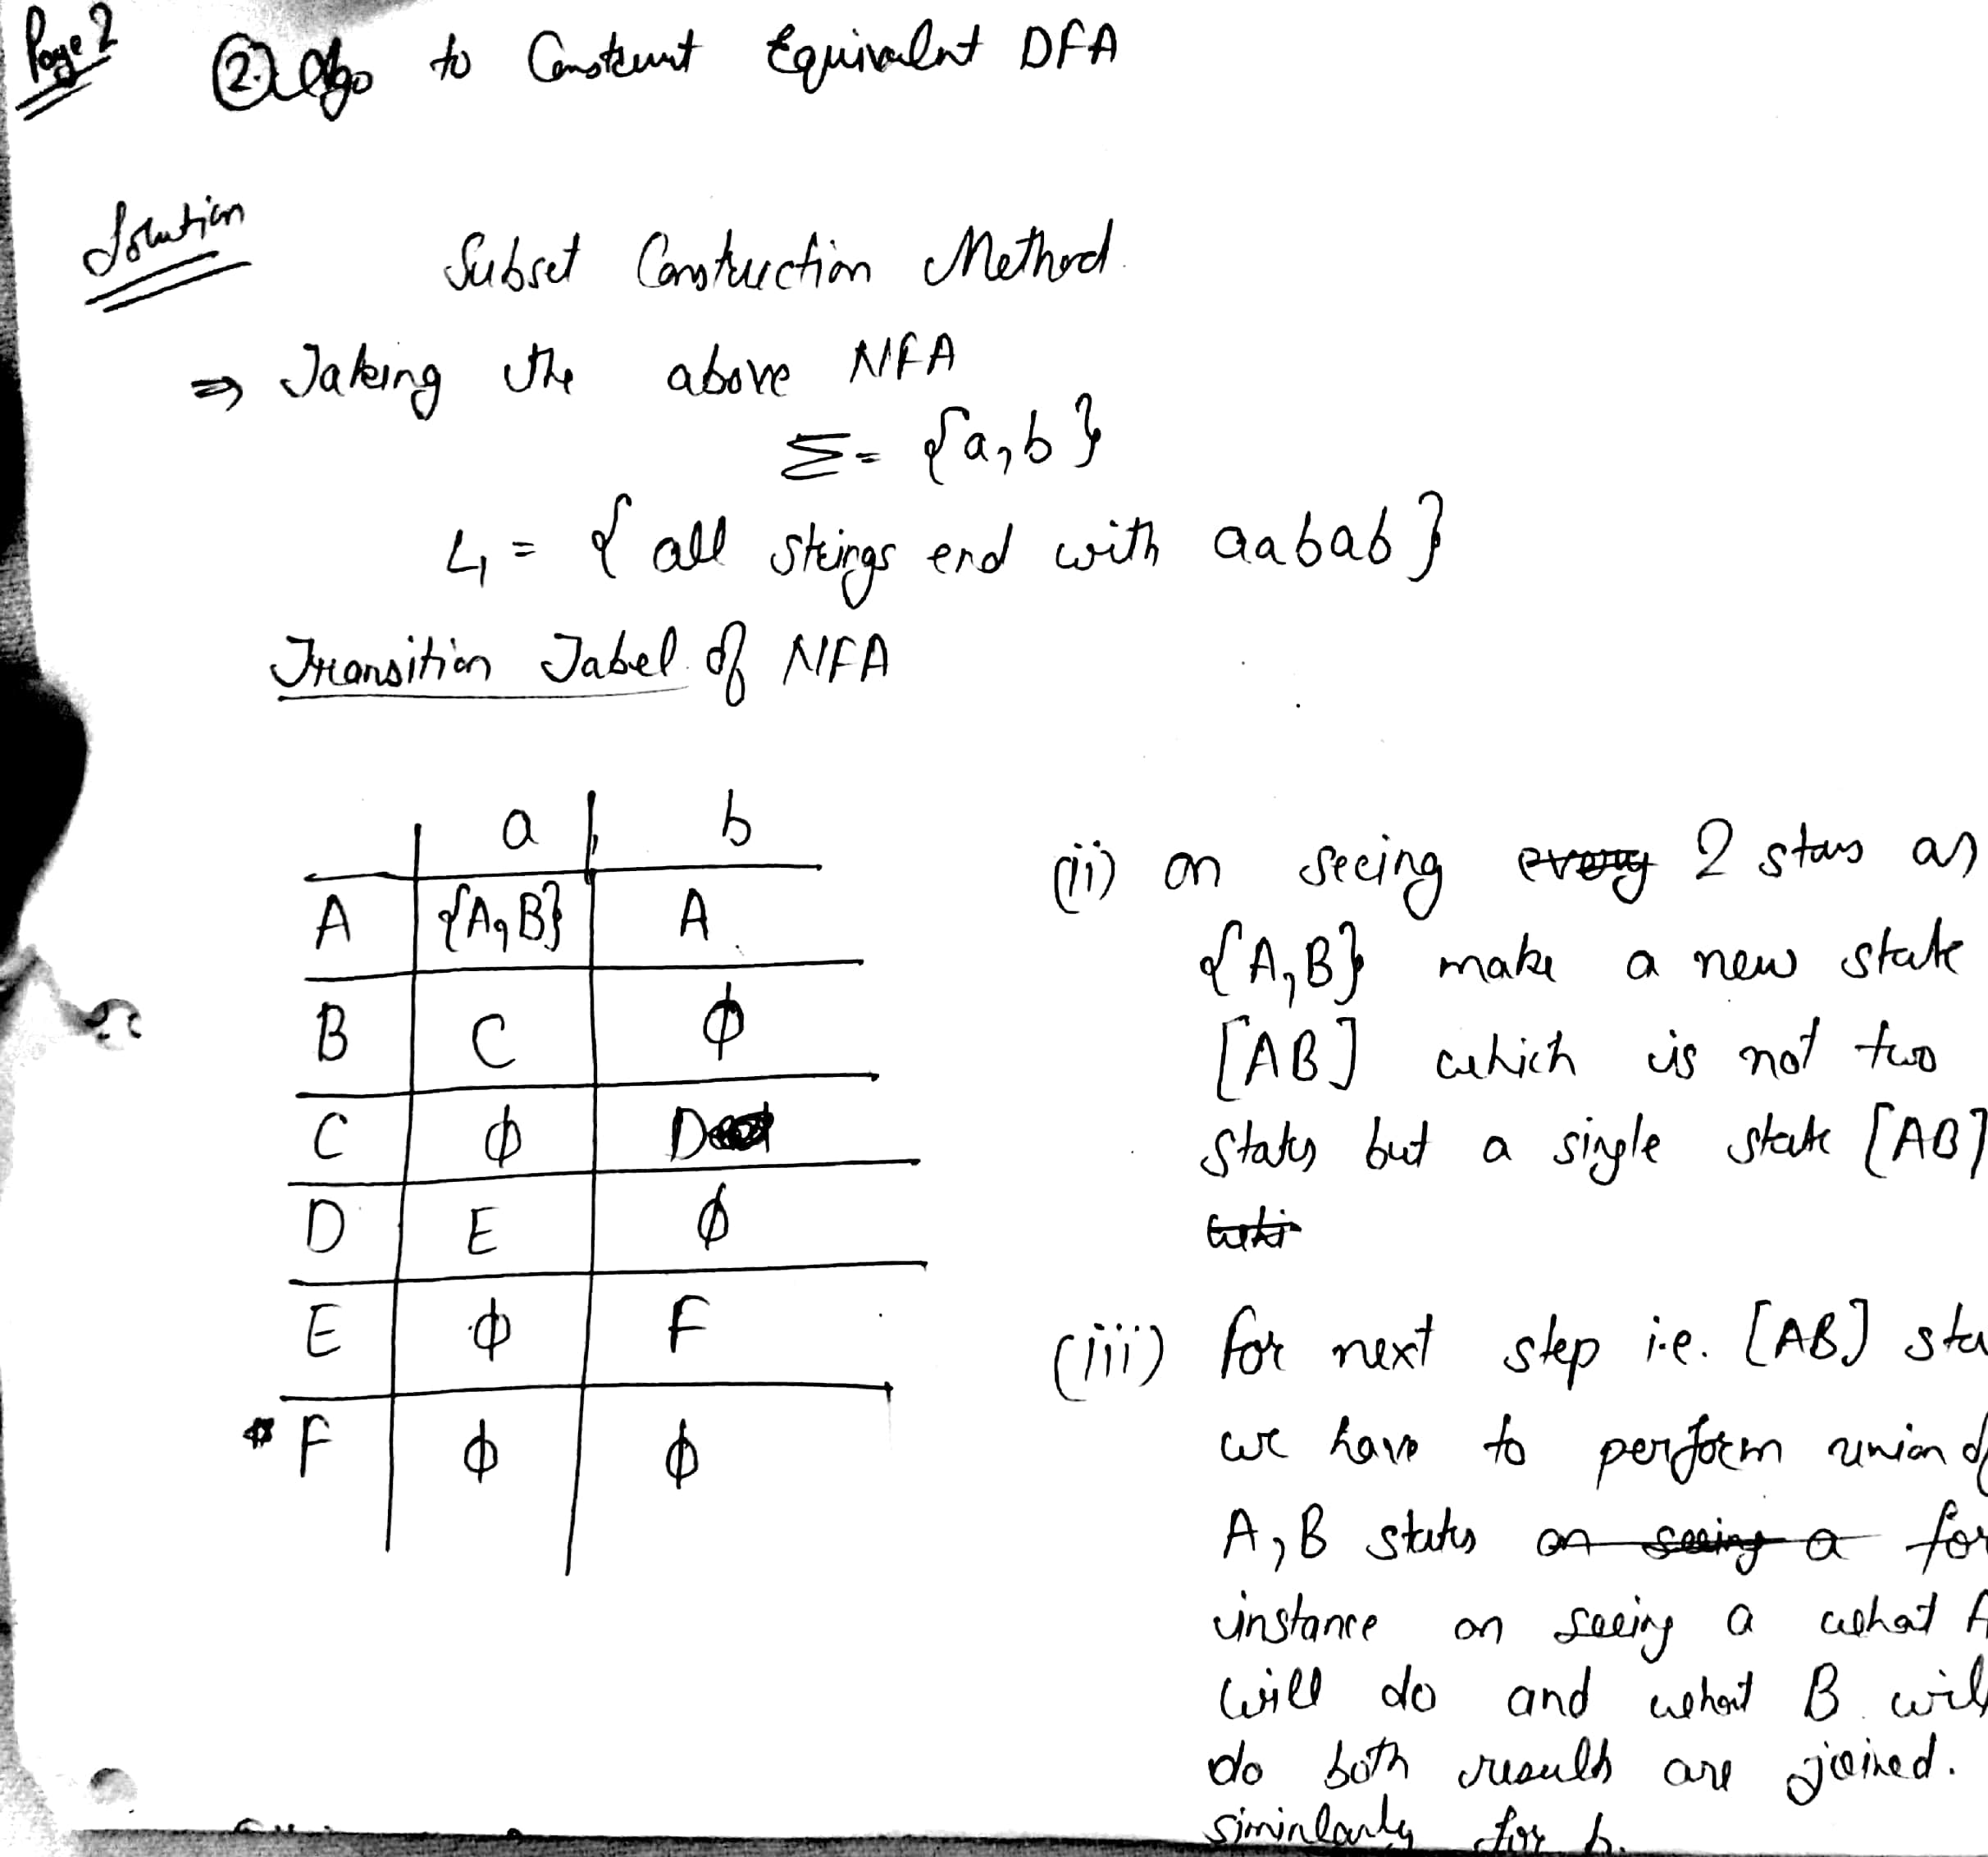 Page 2
2. Algo to Construct Equivalent DFA
Solution
Subset Construction Method
⇒ Taking the above NFA
Σ = {a, b}
L1 = { all strings end with aabab }
Transition Tabel of NFA
a b
A {A, B} A
B C ϕ
C ϕ D
D E ϕ
E ϕ F
* F ϕ ϕ
(ii) on seeing every 2 stats as
{A, B} make a new state
[AB] which is not two
states but a single state [AB]
(iii) for next step i.e. [AB] sta
we have to perform union of
A, B states on seeing a for
instance on seeing a what A
will do and what B will
do both results are joined.
siminlarly for b.